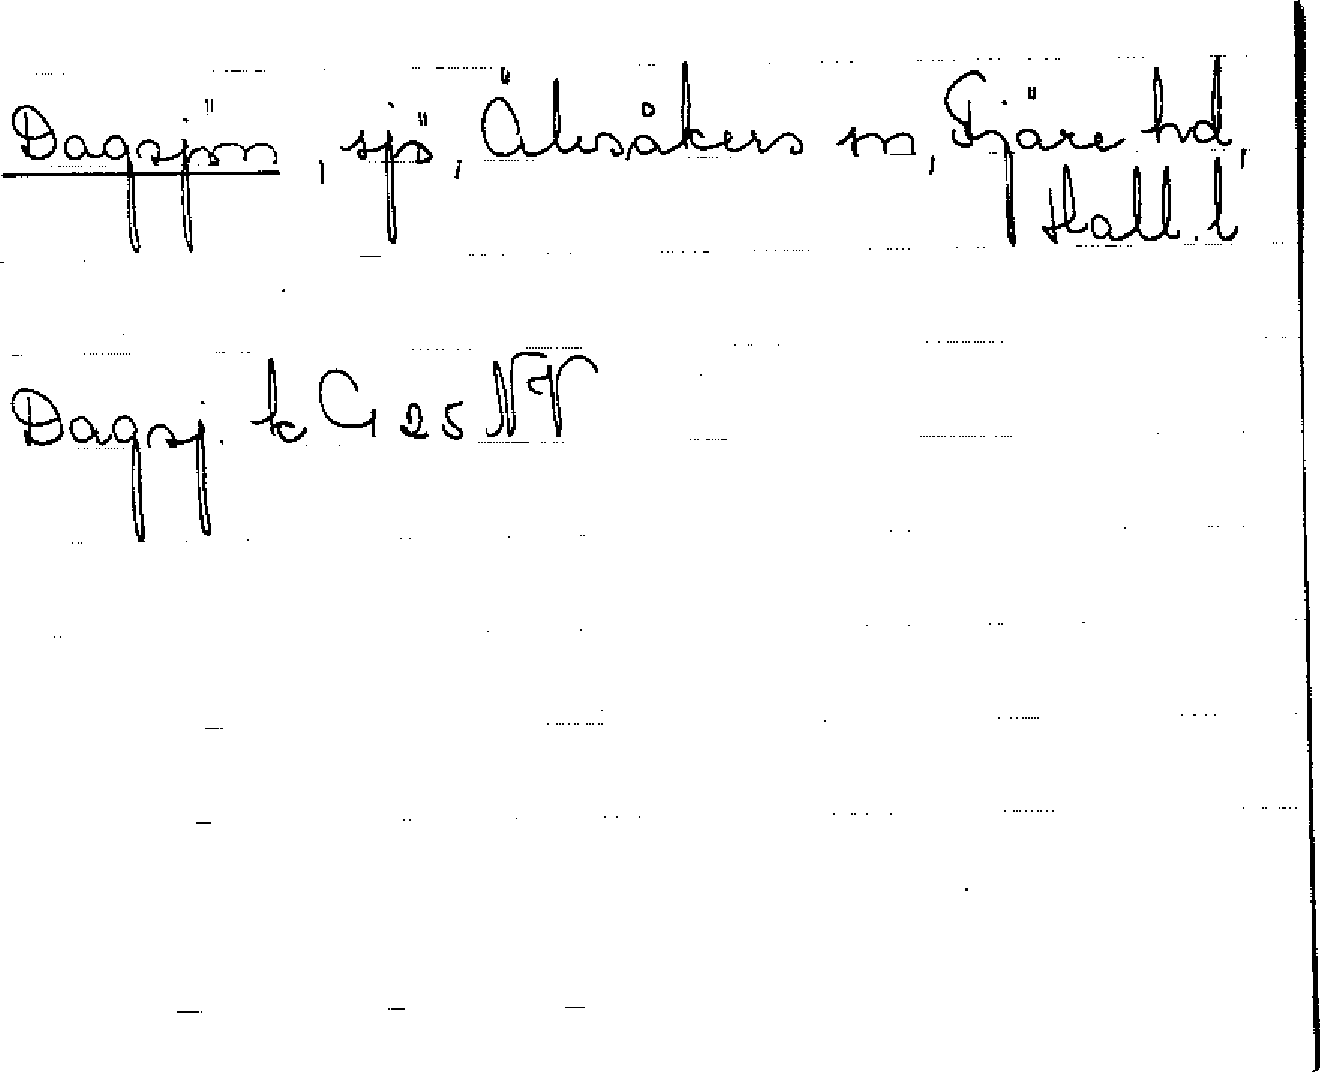 Dagsjön, sjö, Älvsåkers sn, Fjäre hd,
Hall. l
Dagsj. k G 25 NV